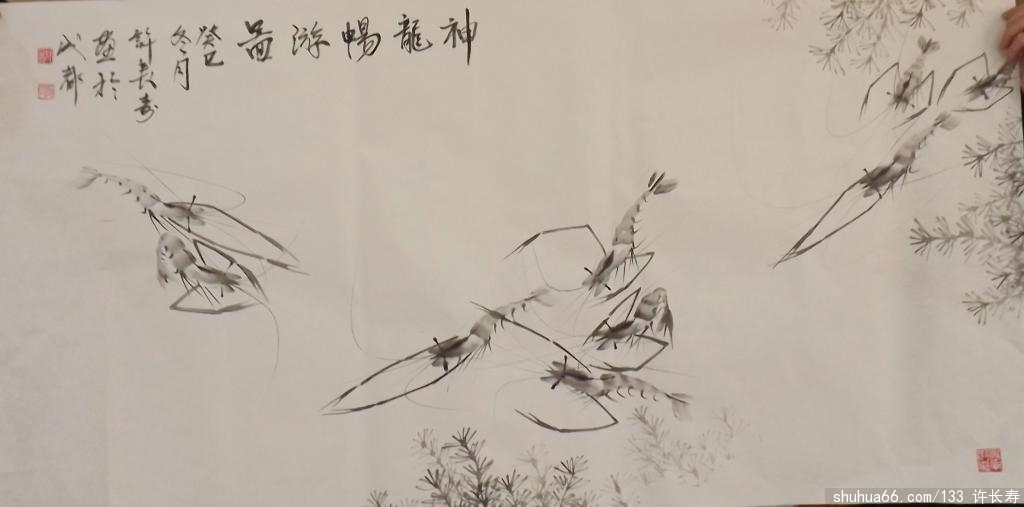 神龍暢游啚
癸巳
冬月
許長壽
畫於
成都
shuhua66.com/133 许长寿